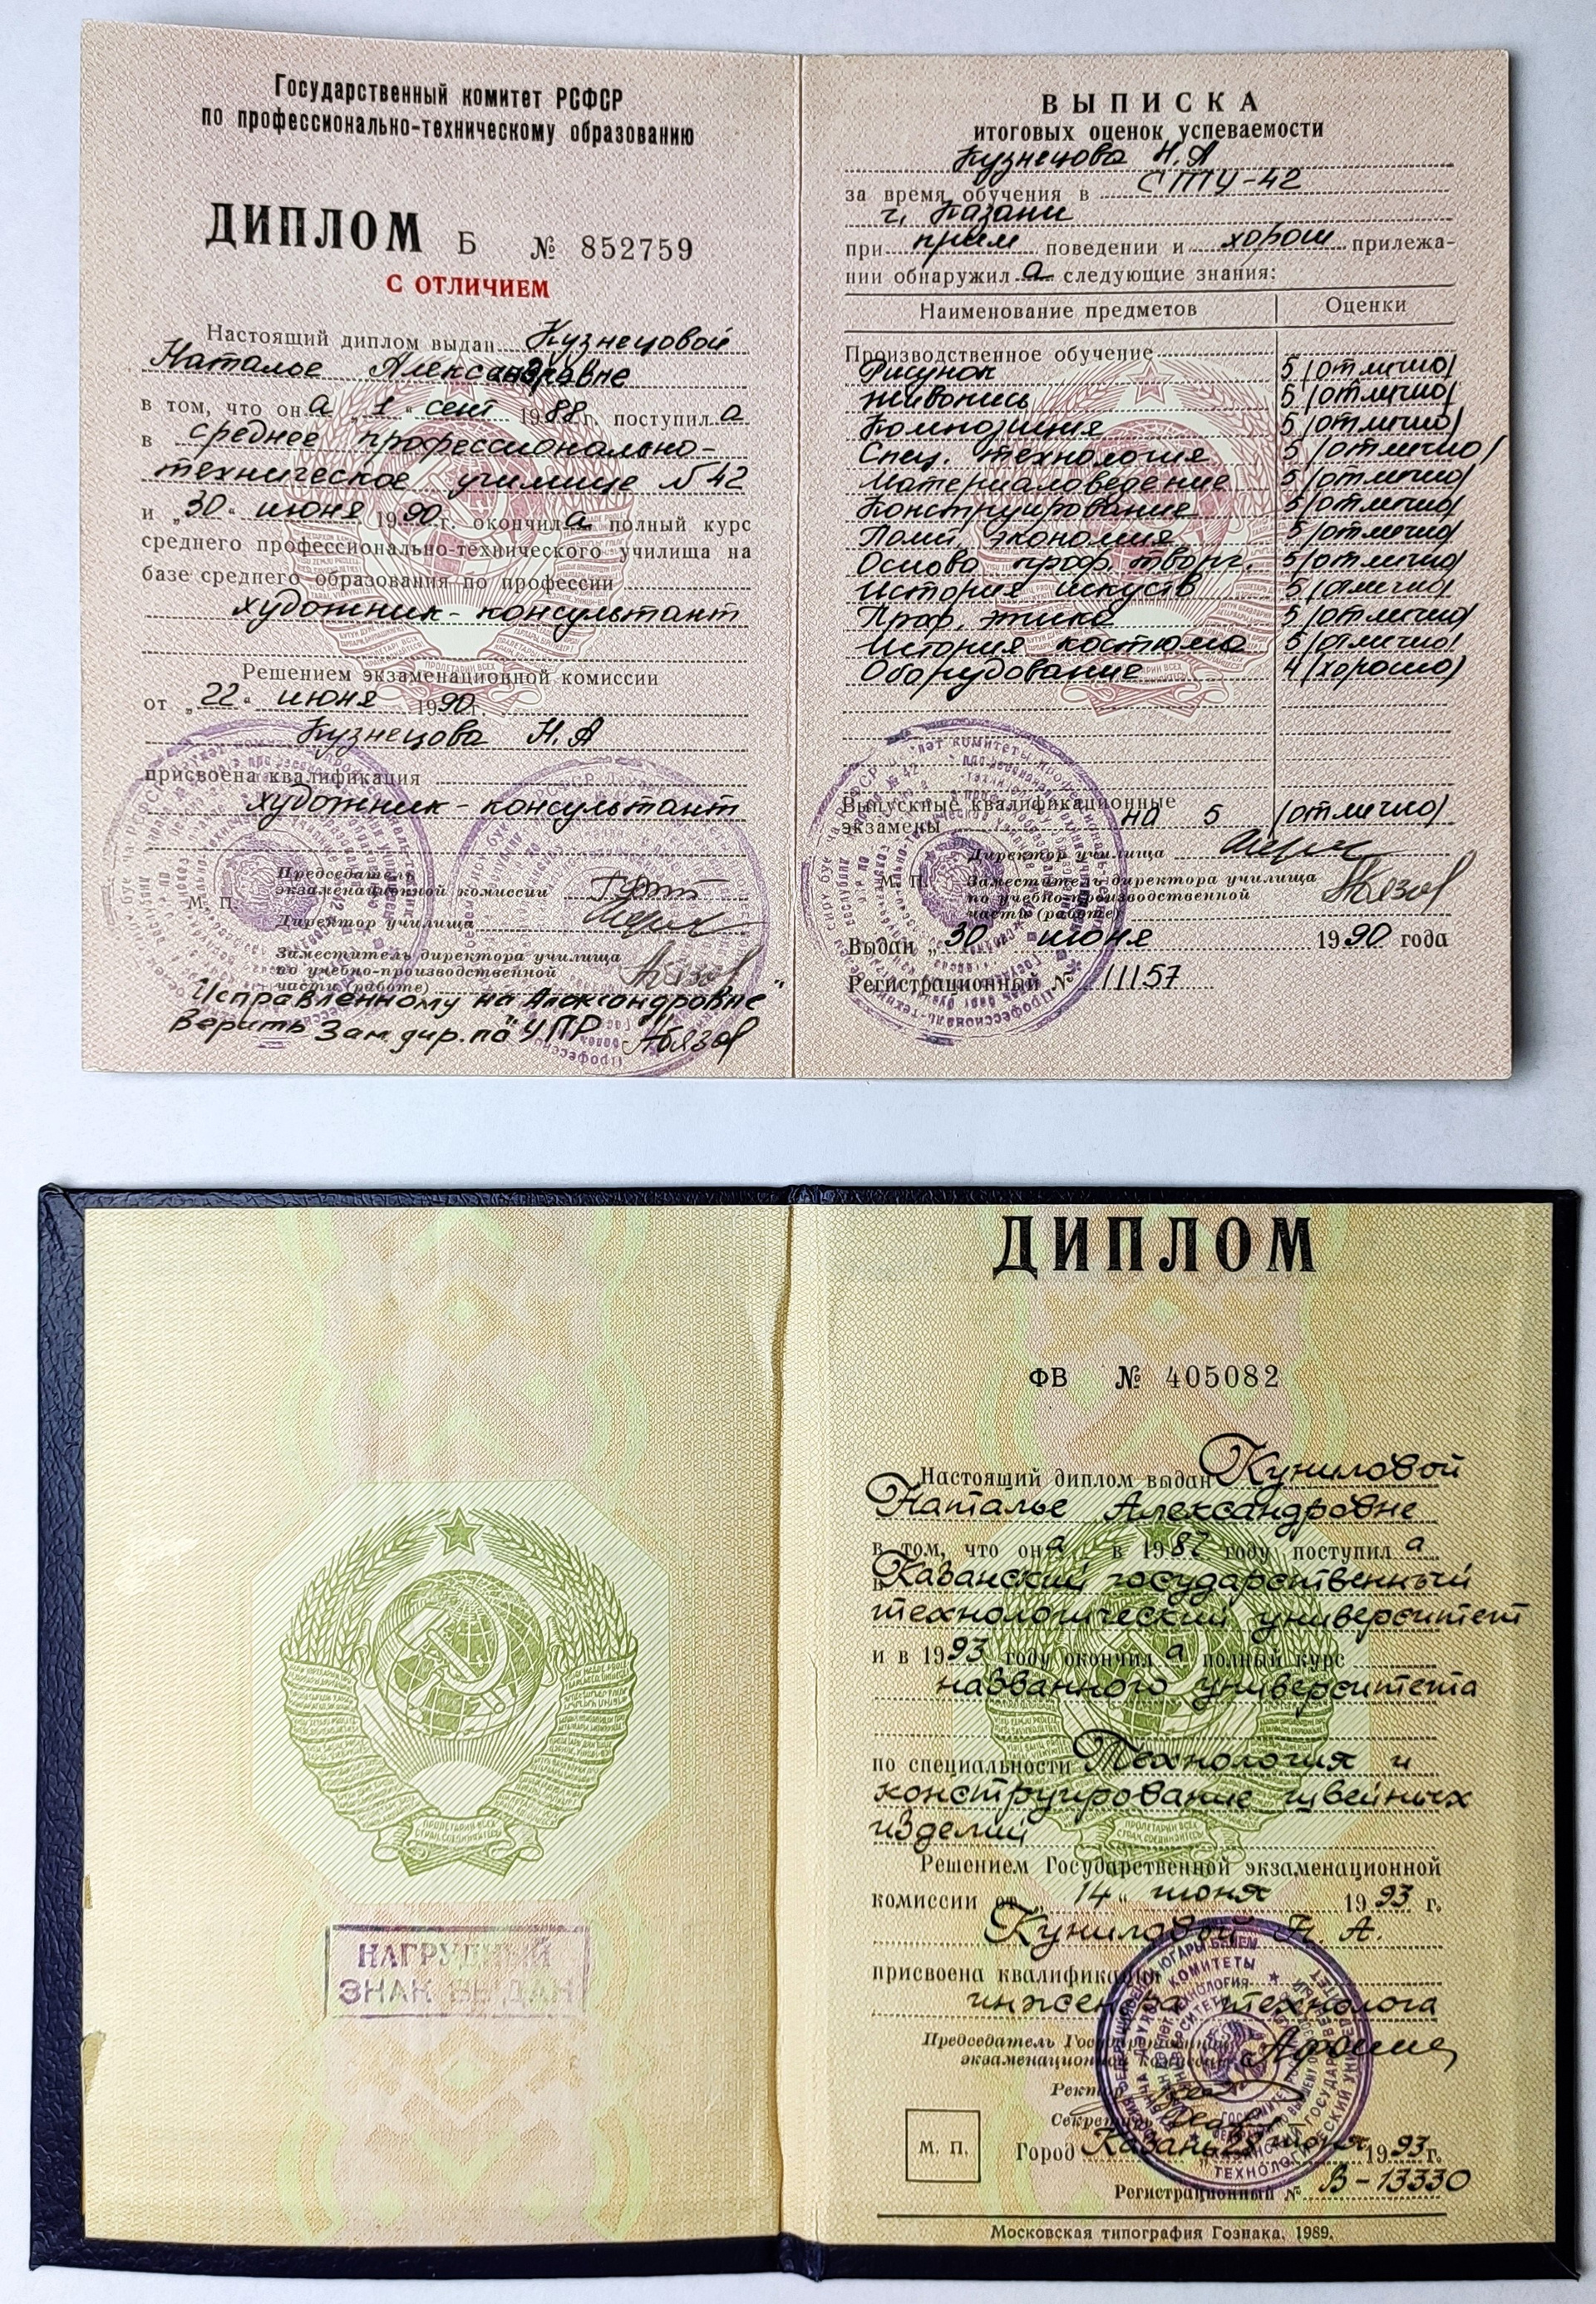 Государственный комитет РСФСР
по профессионально-техническому образованию
ДИПЛОМ Б № 852759
С ОТЛИЧИЕМ
Настоящий диплом выдан Кузнецовой
Наталье Александровне
в том, что он а „1“ сент 1988 г. поступил а
в среднее профессионально-
техническое училище № 42
и „30“ июня 1990 г. окончил а полный курс
среднего профессионально-технического училища на
базе среднего образования по профессии
художник-консультант
Решением экзаменационной комиссии
от „22“ июня 1990 г.
Кузнецова Н.А
присвоена квалификация
художник-консультант
Председатель
экзаменационной комиссии
М. П.
Директор училища
Заместитель директора училища
по учебно-производственной
части (работе)
Исправленному на „Александровне"
Верить Зам. дир. по УПР
ВЫПИСКА
итоговых оценок успеваемости
Кузнецова Н.А
за время обучения в СПТУ-42
г. Казани
при прим поведении и хорош прилежа-
нии обнаружил а следующие знания:
Наименование предметов Оценки
Производственное обучение
Рисунок 5 (отлично)
живопись 5 (отлично)
Композиция 5 (отлично)
Спец. технология 5 (отлично)
Материаловедение 5 (отлично)
Конструирование 5 (отлично)
Полит. экономия 5 (отлично)
Основа проф. творч. 5 (отлично)
История искуств 5 (отлично)
Проф. этика 5 (отлично)
История костюма 5 (отлично)
Оборудование 4 (хорошо)
Выпускные квалификационные
экзамены на 5 (отлично)
Директор училища
М. П. Заместитель директора училища
по учебно-производственной
части (работе)
Выдан „30“ июня 1990 года
Регистрационный № 11157
ПРОЛЕТАРИИ ВСЕХ
СТРАН, СОЕДИНЯЙТЕСЬ!
НАГРУДНЫЙ
ЗНАК ВЫДАН
ДИПЛОМ
ФВ № 405082
Настоящий диплом выдан Куниловой
Наталье Александровне
в том, что он а в 1987 году поступил а
в Казанский государственный
технологический университет
и в 1993 году окончил а полный курс
названного университета
по специальности Технология и
конструирование швейных
изделий
Решением Государственной экзаменационной
комиссии от „14“ июня 1993 г.
Куниловой Н. А.
присвоена квалификация
инженера технолога
Председатель Государственной
экзаменационной комиссии
Ректор
Секретарь
М. П.
Город Казань 28 июня 1993 г.
Регистрационный № В-13330
Московская типография Гознака. 1989.